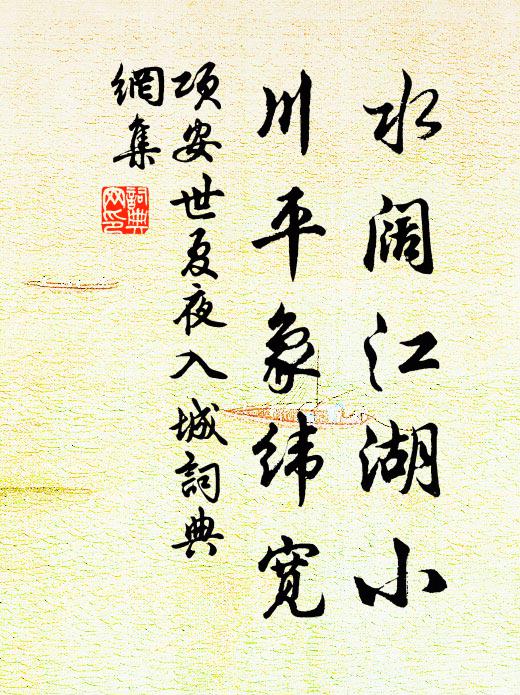 水阔江湖小
川平象纬宽
项安世夏夜入城詞典
網集
詞典
网印